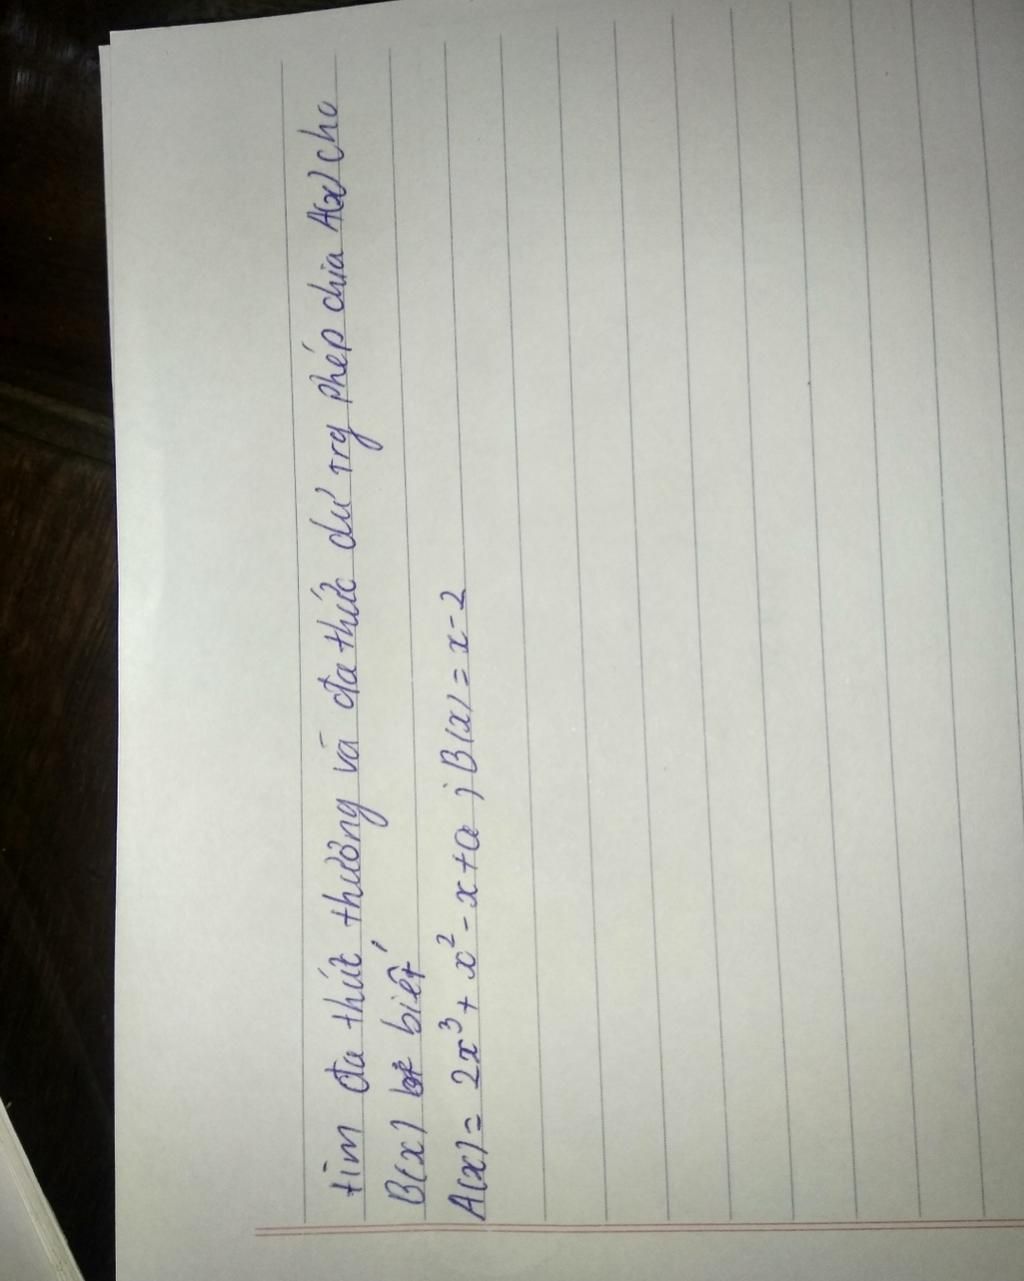 tìm đa thức thương và đa thức dư trg phép chia A(x) cho
B(x) biết
A(x) = 2x³ + x² - x + a ; B(x) = x - 2